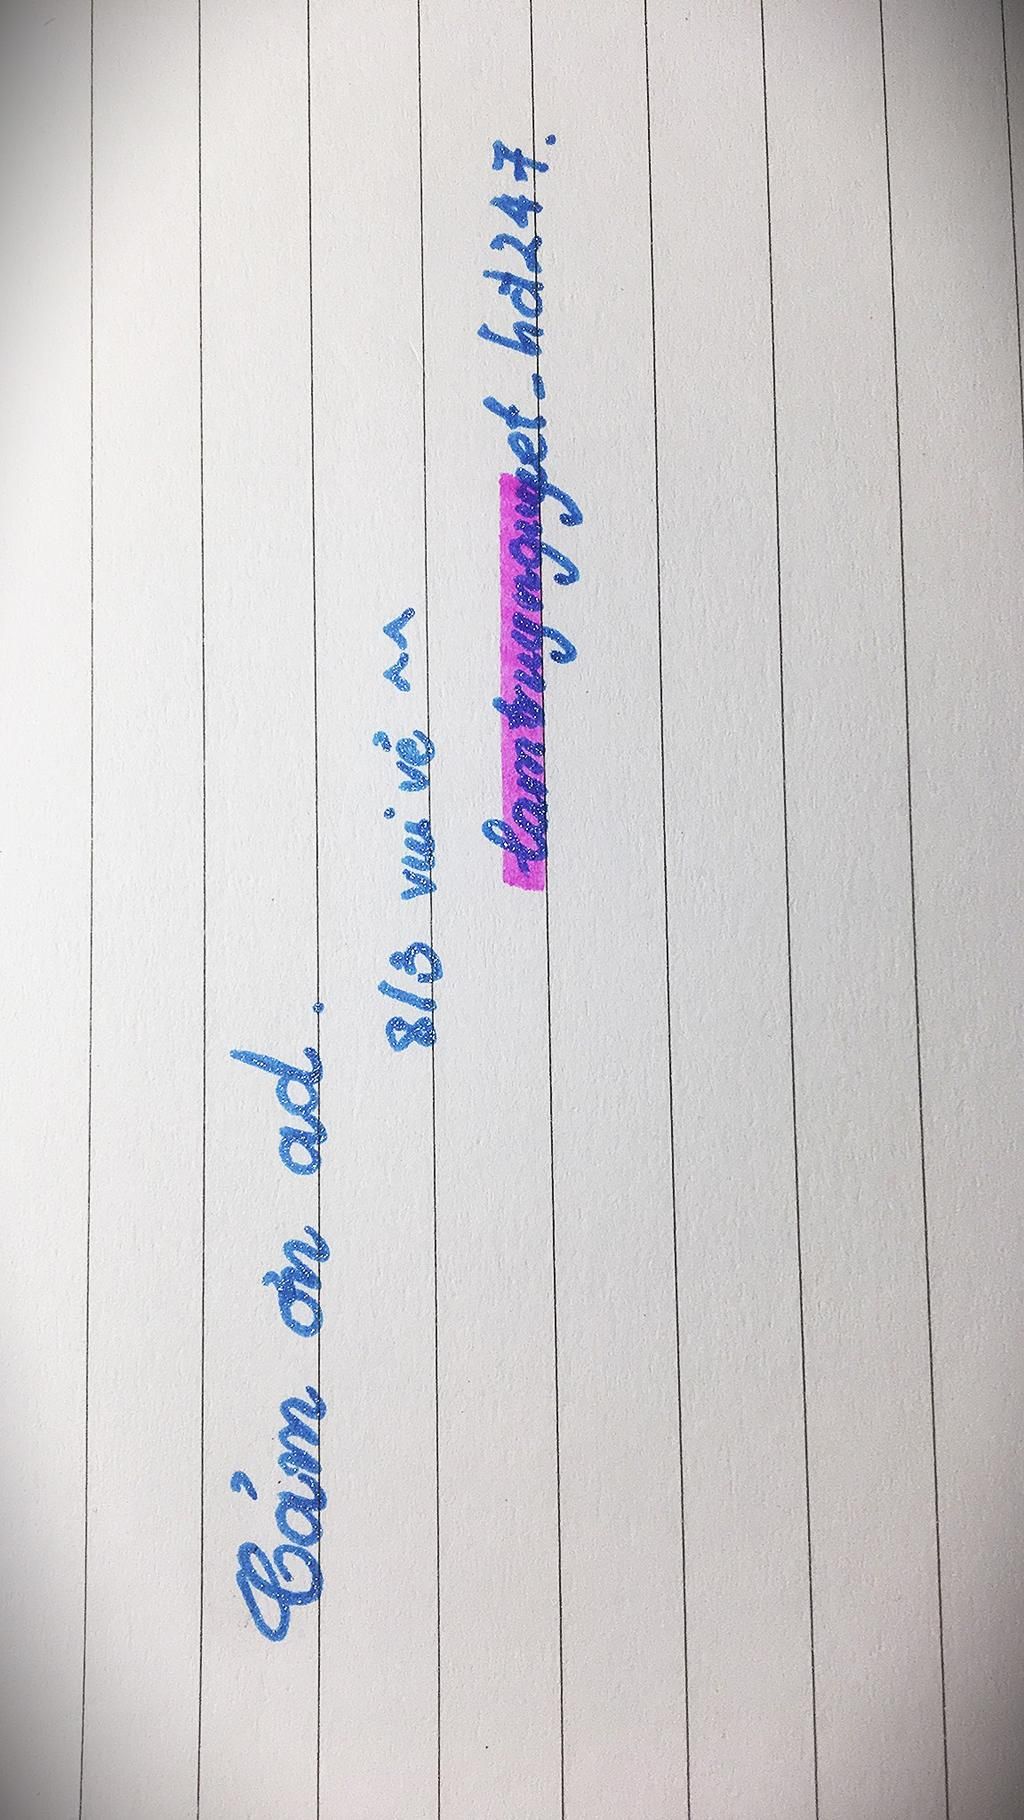 Cảm ơn ad.
8/3 vui vẻ ^^
lamtruynguyet_hd247.